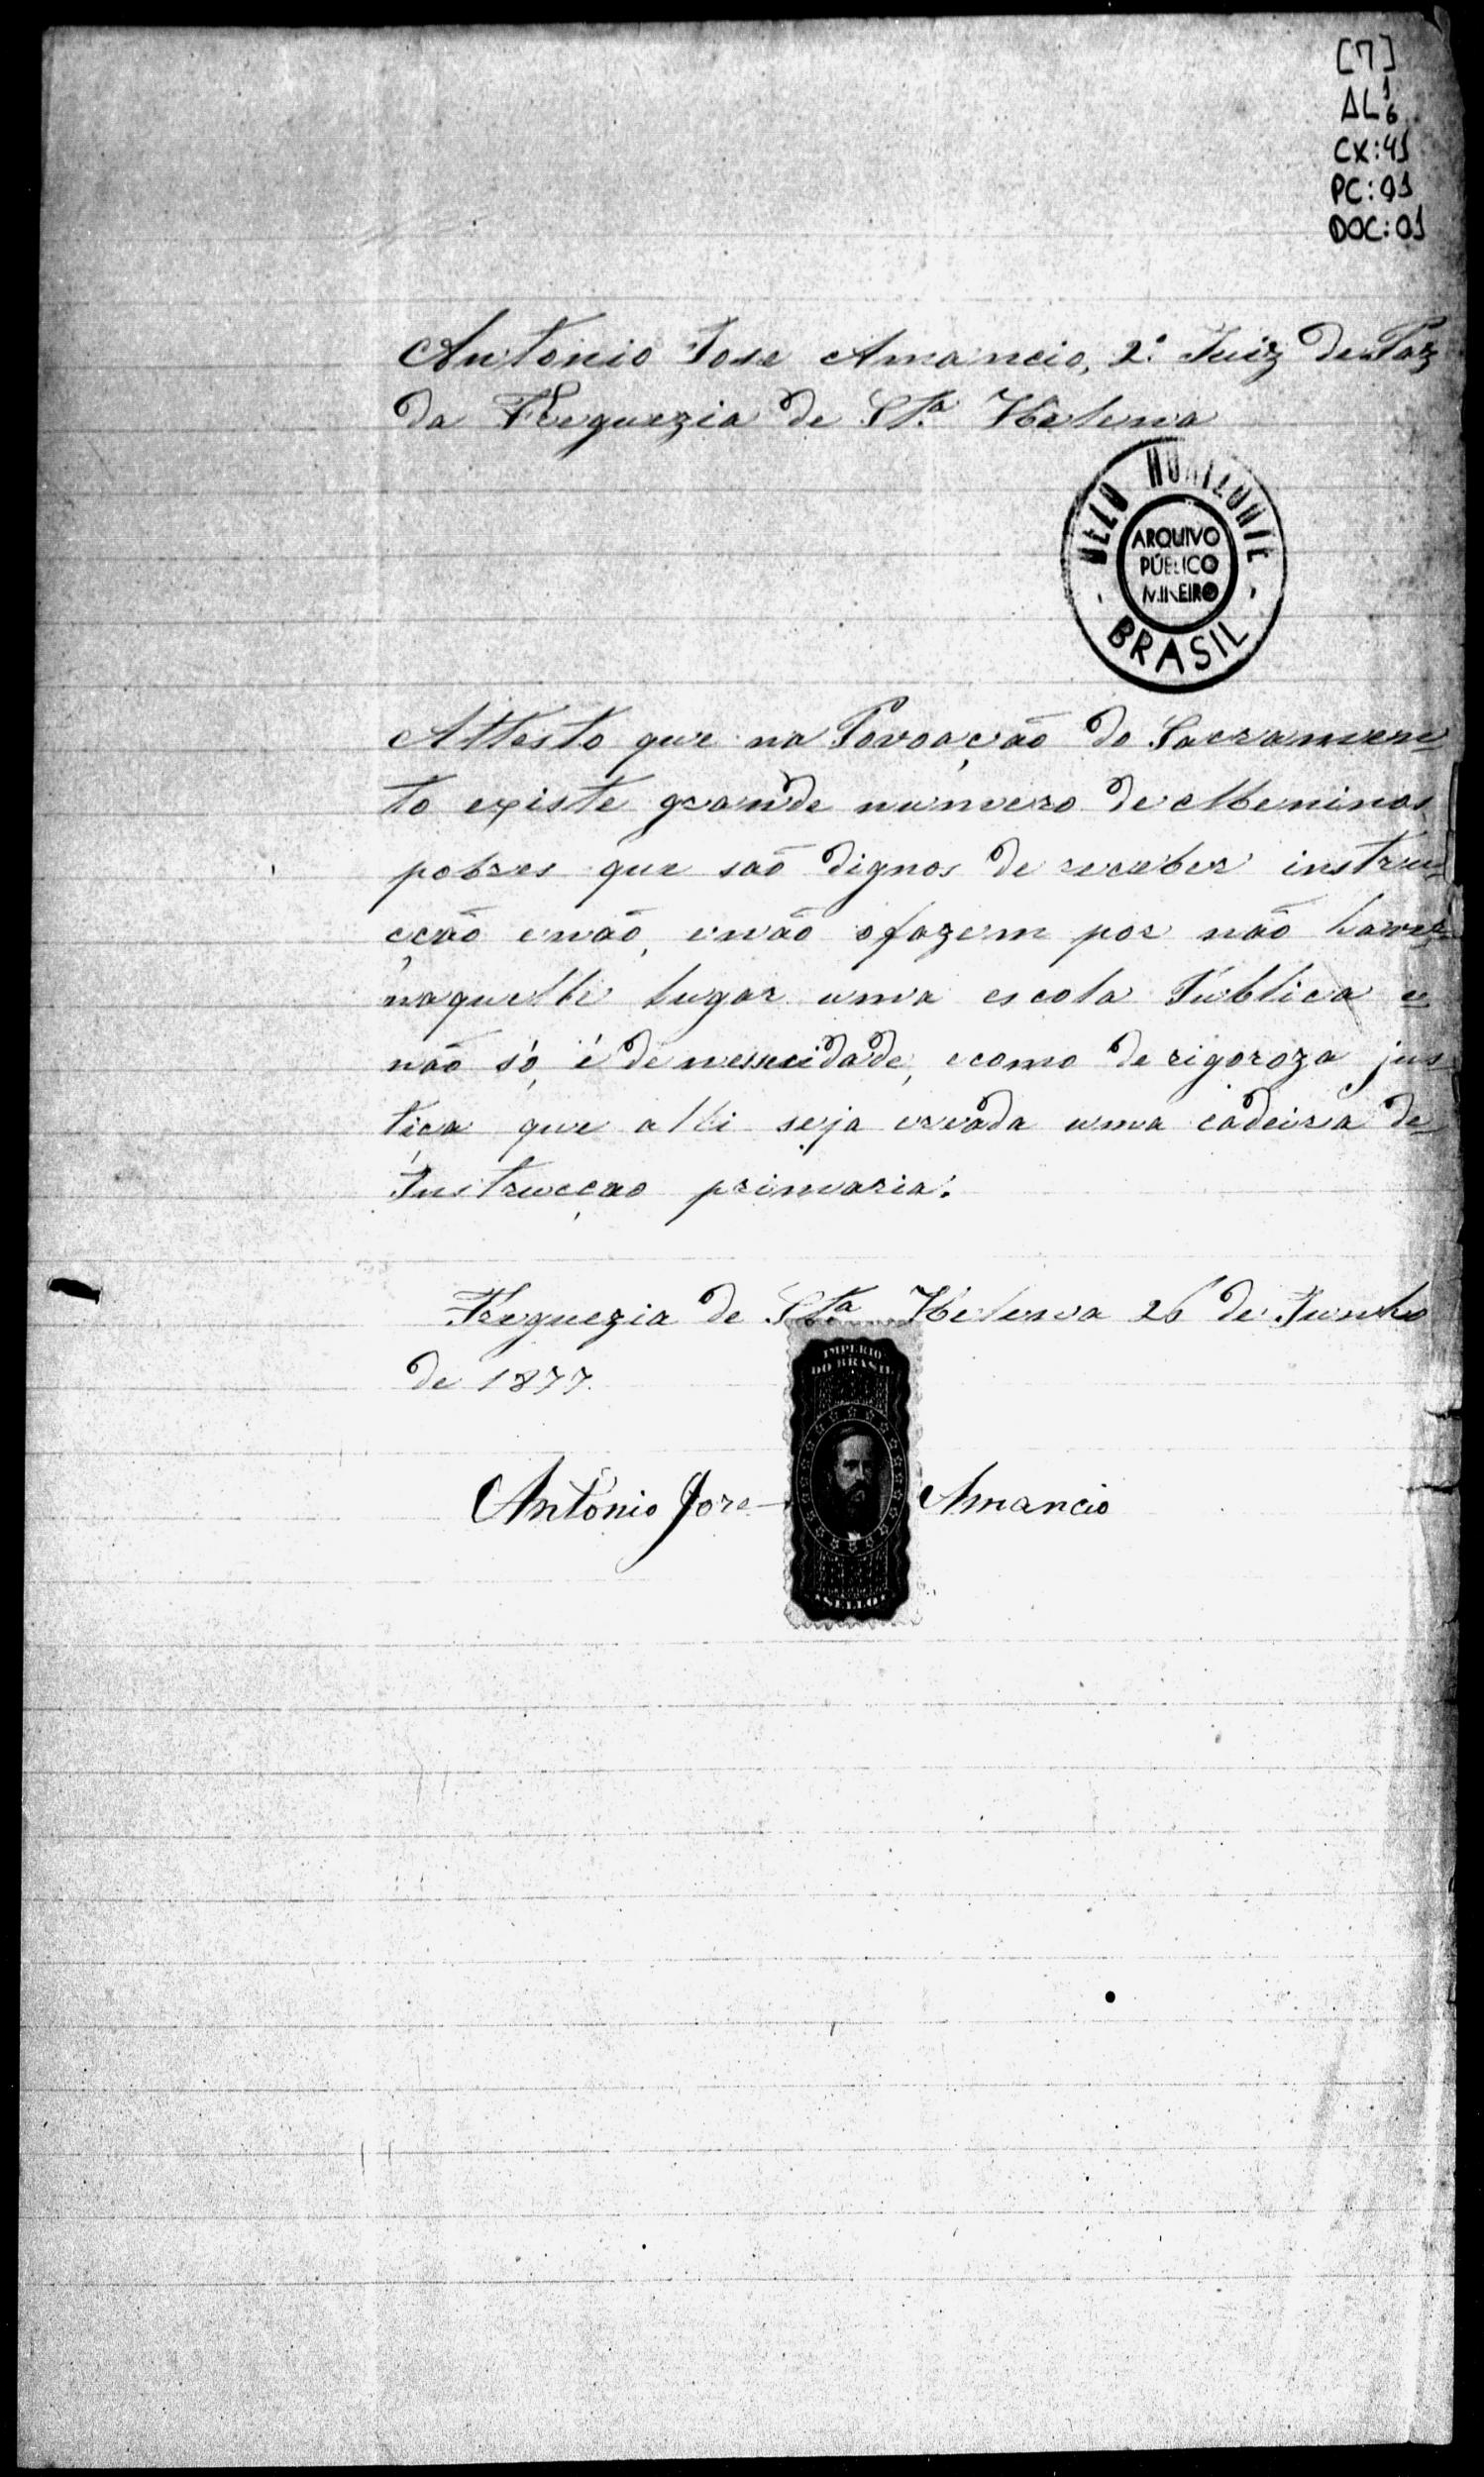 [7]
AL 1/6
CX:41
PC:01
DOC:01
Antonio Jose Amancio, 2º Juiz de Paz
da Freguezia de Sta Helena
BELLO HORIZONTE
ARQUIVO
PÚBLICO
MINEIRO
- BRASIL -
Attesto que na Povoação do Sacramen=
to existe grande numero de Meninos
pobres que saõ dignos de receber instru=
cção enão, enão ofazem por não haver
naquelle lugar uma escola Publica e
não só, é de nessecidade, ecomo de rigoroza jus
tiça que alli seja creada uma cadeira de
Instrucçao primaria.
Freguezia de Sta Helena 26 de Junho
de 1877.
IMPERIO
DO BRASIL
Antonio Jose Amancio
SELLO